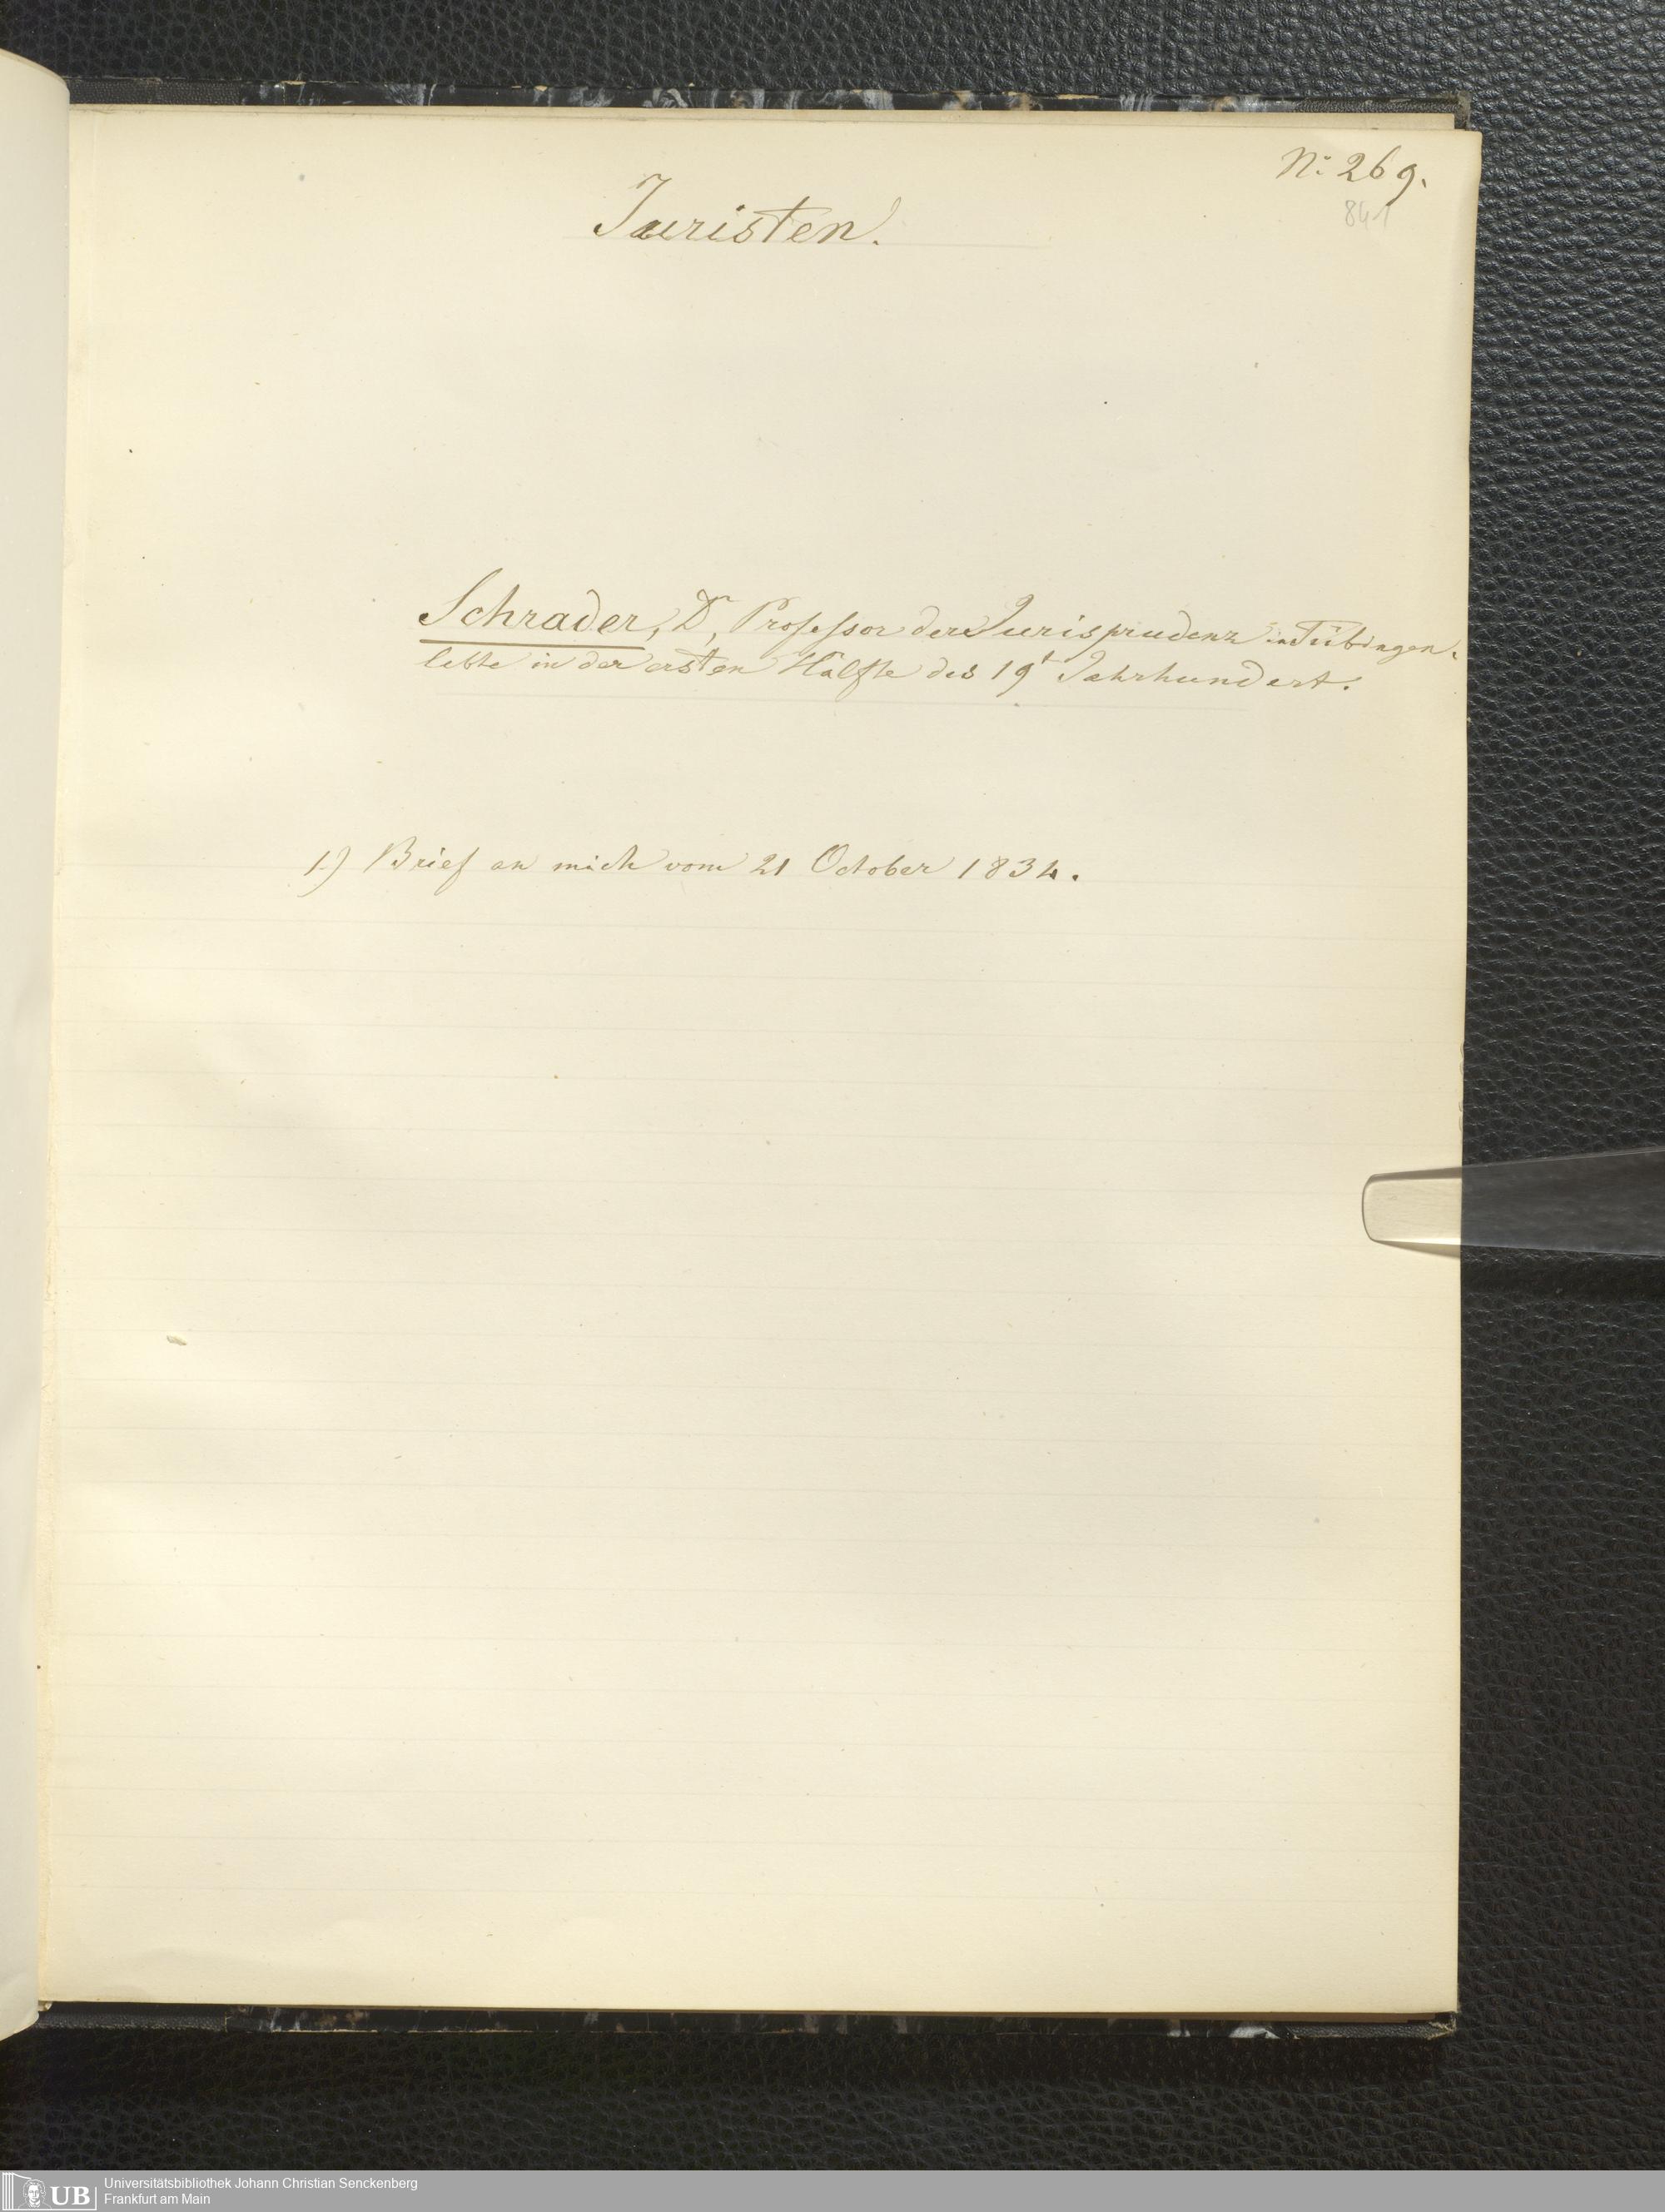 No 269.
841
Juristen.
Schrader, Dr, Professor der Jurisprudenz in Tübingen.
lebte in der ersten Hälfte des 19t Jahrhundert.
1.) Brief an mich vom 21 October 1834.
UB Universitätsbibliothek Johann Christian Senckenberg
Frankfurt am Main